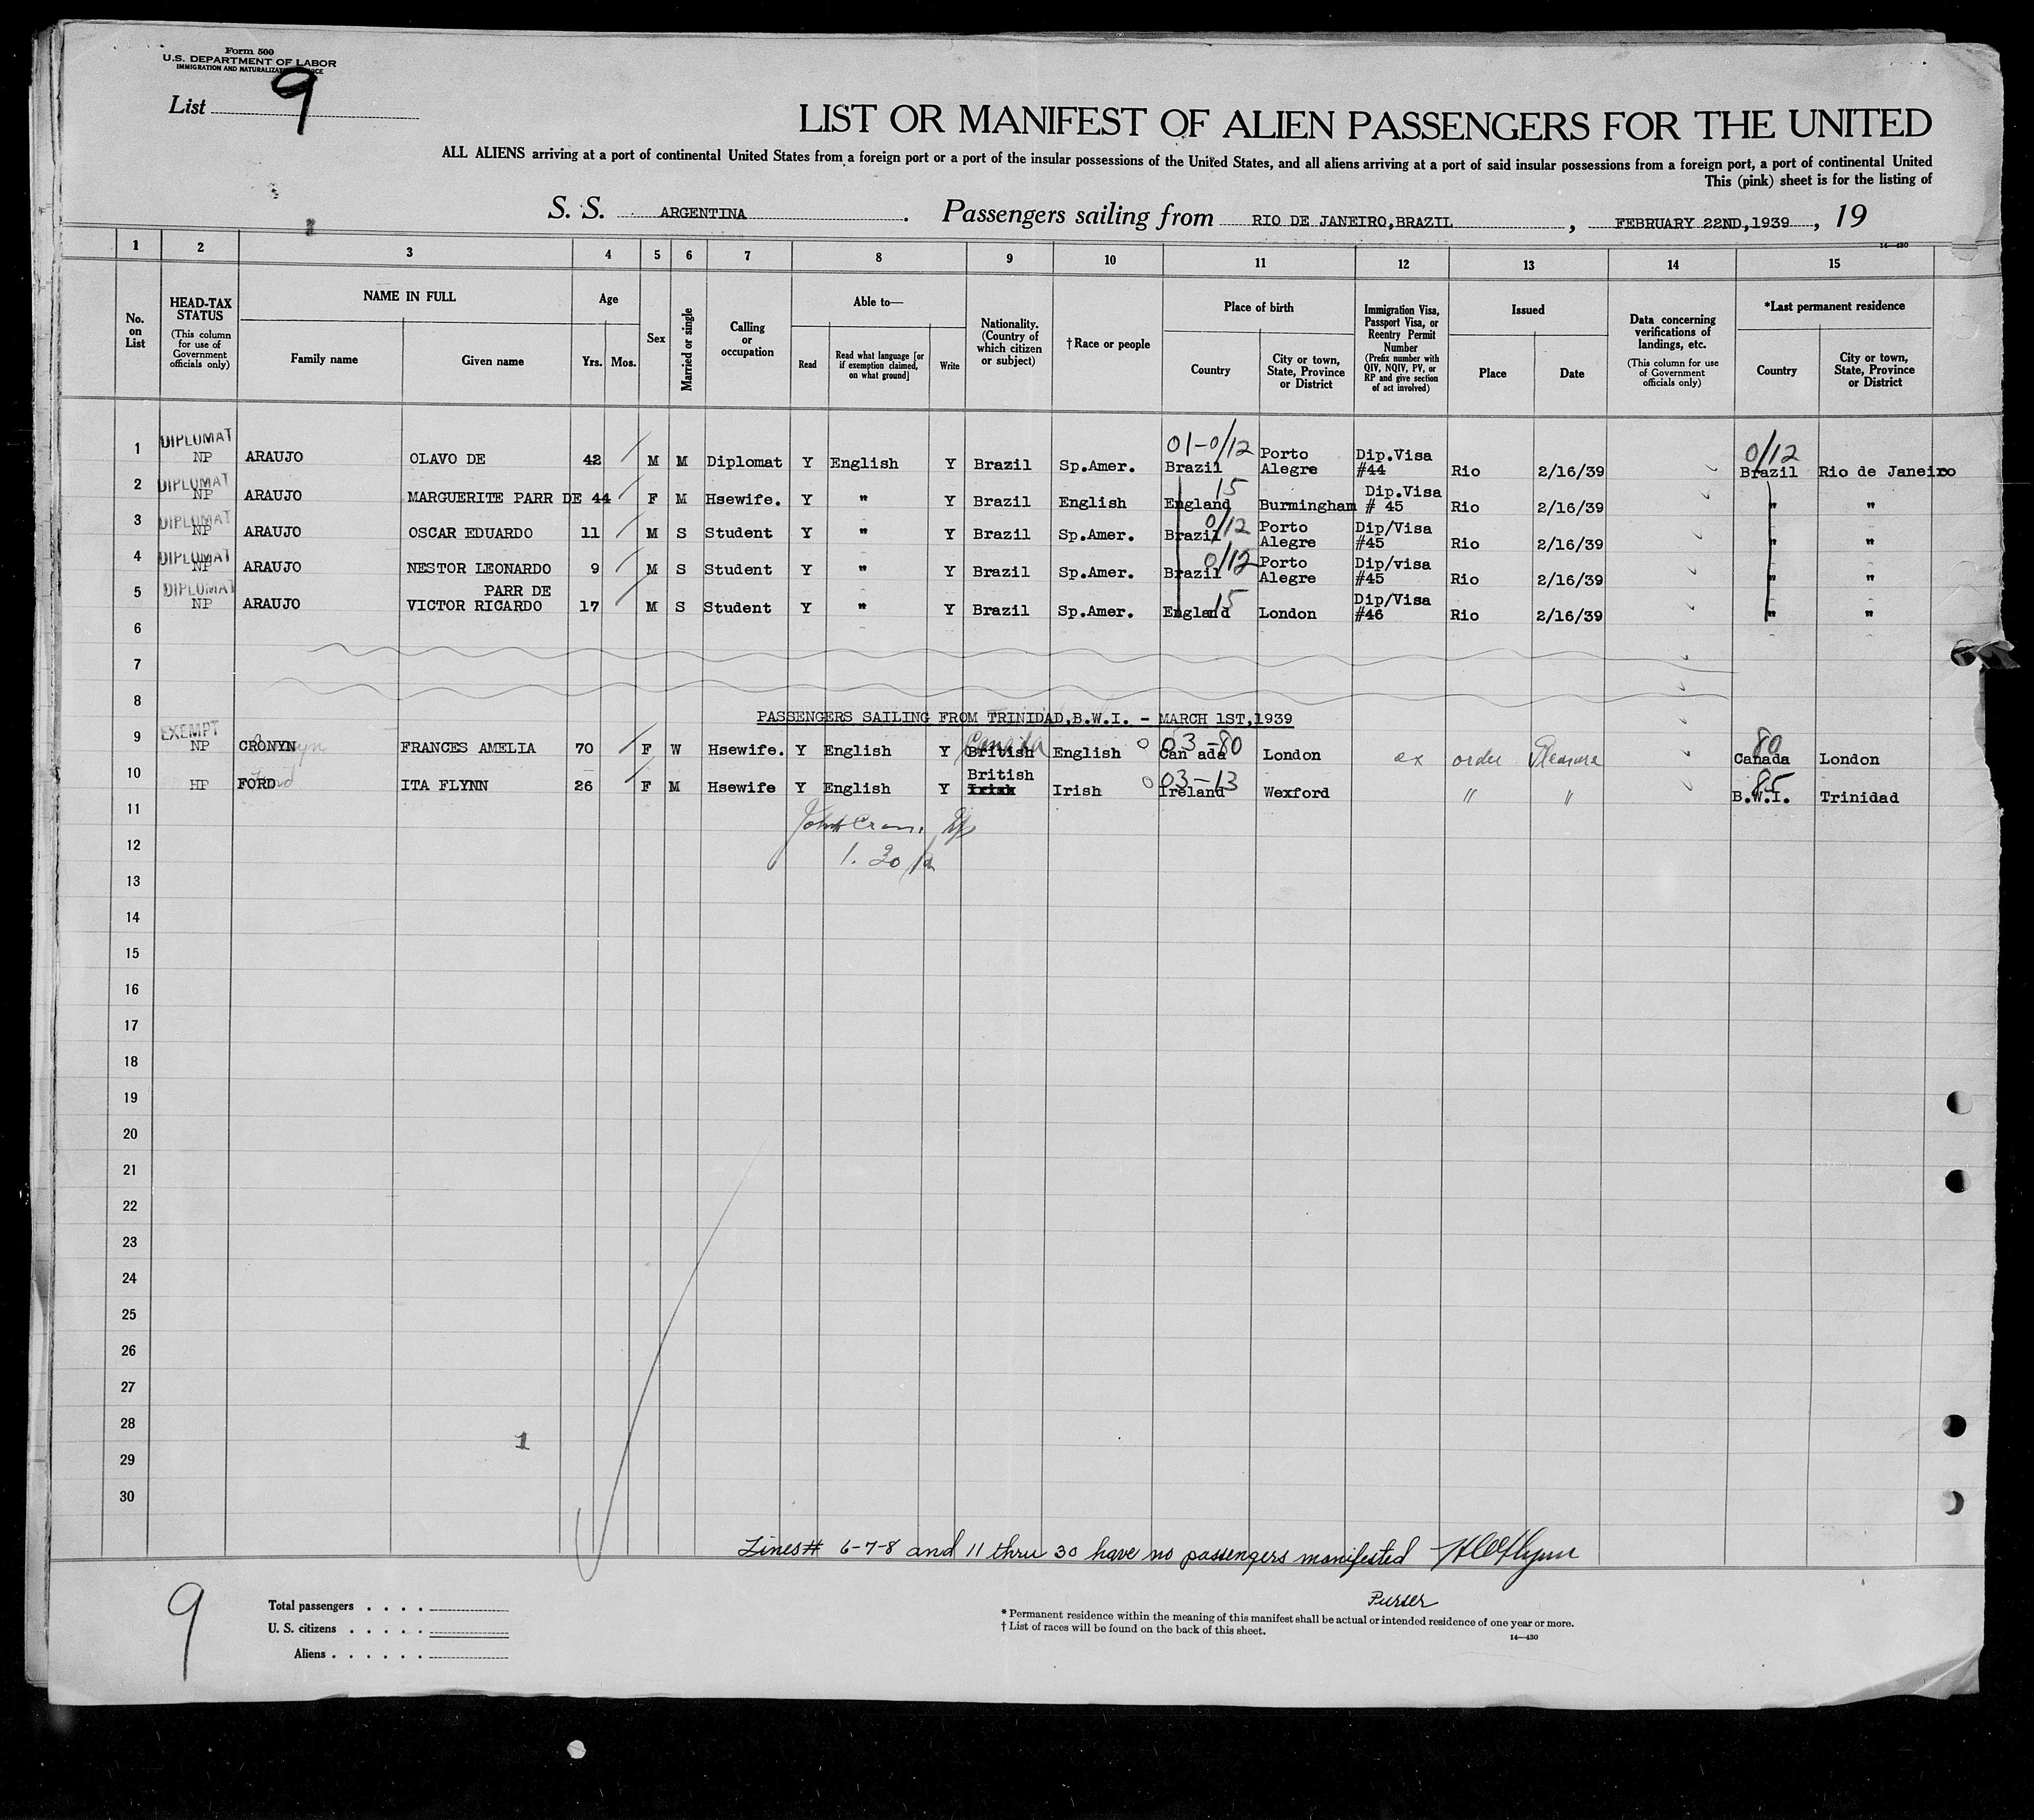 Form 500
U.S. DEPARTMENT OF LABOR
IMMIGRATION AND NATURALIZATION SERVICE
List 9
LIST OR MANIFEST OF ALIEN PASSENGERS FOR THE UNITED
ALL ALIENS arriving at a port of continental United States from a foreign port or a port of the insular possessions of the United States, and all aliens arriving at a port of said insular possessions from a foreign port, a port of continental United
This (pink) sheet is for the listing of
S. S. ARGENTINA. Passengers sailing from RIO DE JANEIRO,BRAZIL, FEBRUARY 22ND,1939, 19
14—430
1 2 3 4 5 6 7 8 9 10 11 12 13 14 15
No. on List
HEAD-TAX STATUS (This column for use of Government officials only)
NAME IN FULL
Family name Given name
Age
Yrs. Mos.
Sex
Married or single
Calling or occupation
Able to—
Read Read what language [or if exemption claimed, on what ground] Write
Nationality. (Country of which citizen or subject)
†Race or people
Place of birth
Country City or town, State, Province or District
Immigration Visa, Passport Visa, or Reentry Permit Number (Prefix number with QIV, NQIV, PV, or RP and give section of act involved)
Issued
Place Date
Data concerning verifications of landings, etc. (This column for use of Government officials only)
*Last permanent residence
Country City or town, State, Province or District
1 DIPLOMAT NP ARAUJO OLAVO DE 42 M M Diplomat Y English Y Brazil Sp.Amer. 01-0/12 Brazil Porto Alegre Dip.Visa #44 Rio 2/16/39 0/12 Brazil Rio de Janeiro
2 DIPLOMAT NP ARAUJO MARGUERITE PARR DE 44 F M Hsewife. Y " Y Brazil English 15 England Burmingham Dip.Visa # 45 Rio 2/16/39 " "
3 DIPLOMAT NP ARAUJO OSCAR EDUARDO 11 M S Student Y " Y Brazil Sp.Amer. 0/12 Brazil Porto Alegre Dip/Visa #45 Rio 2/16/39 " "
4 DIPLOMAT NP ARAUJO NESTOR LEONARDO 9 M S Student Y " Y Brazil Sp.Amer. 0/12 Brazil Porto Alegre Dip/visa #45 Rio 2/16/39 " "
5 DIPLOMAT NP ARAUJO PARR DE VICTOR RICARDO 17 M S Student Y " Y Brazil Sp.Amer. 15 England London Dip/Visa #46 Rio 2/16/39 " "
6
7
8
PASSENGERS SAILING FROM TRINIDAD,B.W.I. - MARCH 1ST,1939
9 EXEMPT NP CRONYN Cronyn FRANCES AMELIA 70 F W Hsewife. Y English Y Canada British English 0 03-80 Can ada London ex order 80 Canada London
10 HP FORD Ford ITA FLYNN 26 F M Hsewife Y English Y British Irish Irish 0 03-13 Ireland Wexford " " 85 B.W.I. Trinidad
11
12
1. 30
13
14
15
16
17
18
19
20
21
22
23
24
25
26
27
28
1
29
30
Lines# 6-7-8 and 11 thru 30 have no passengers manifested
Purser
9
Total passengers
U. S. citizens
Aliens
* Permanent residence within the meaning of this manifest shall be actual or intended residence of one year or more.
† List of races will be found on the back of this sheet.
14—430